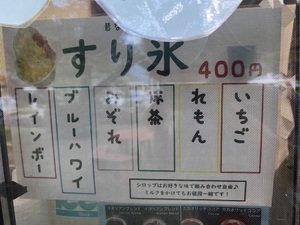 すり氷
400円
いちご
れもん
抹茶
みぞれ
ブルーハワイ
レインボー
シロップはお好きな味で組み合わせ自由♪
ミルクをかけてもお値段一緒です!